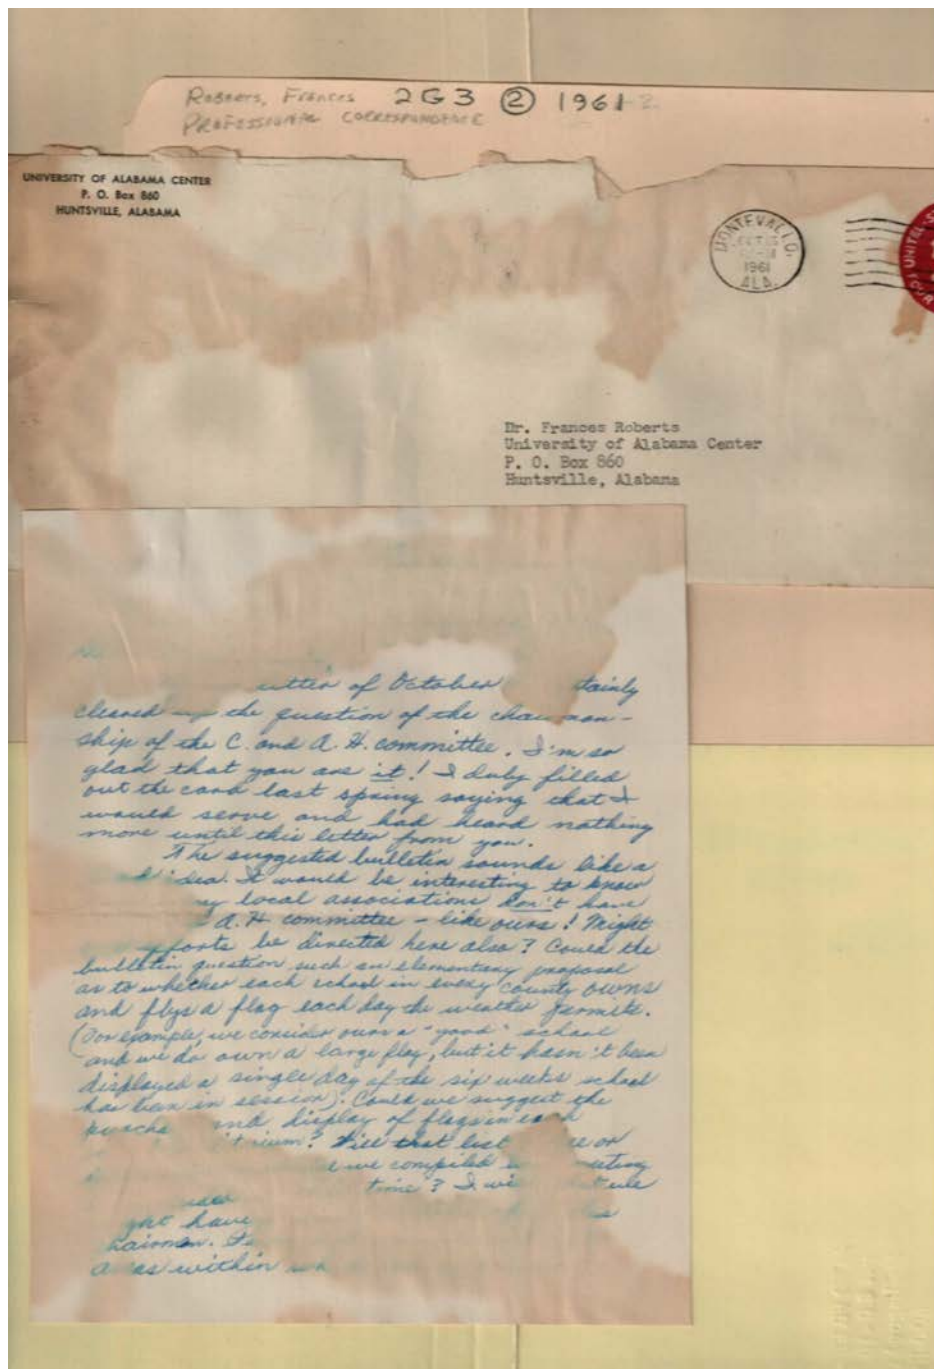 Roberts, Frances 2G3 ② 1961-2
PROFESSIONAL CORRESPONDENCE
UNIVERSITY OF ALABAMA CENTER
P. O. Box 860
HUNTSVILLE, ALABAMA
MONTEVALLO
1961
ALA.
Dr. Frances Roberts
University of Alabama Center
P. O. Box 860
Huntsville, Alabama
etter of October tainly
cleared up the question of the chairman-
ship of the C. and A. H. committee. I'm so
glad that you are it! I duly filled
out the card last spring saying that I
would serve and had heard nothing
more until this letter from you.
The suggested bulletin sounds like a
idea. It would be interesting to know
y local associations don't have
A. H. committee - like ours! Might
fforts be directed here also? Could the
bulletin question such an elementary proposal
as to whether each school in every county owns
and flys a flag each day the weather permits.
(For example, we consider ours a "good" school
and we do own a large flag, but it hasn't been
displayed a single day of the six weeks school
has been in session). Could we suggest the
purcha and display of flags in each
itorium? Will that list or
we compiled
time? I wi
ght have
hairman.
as within